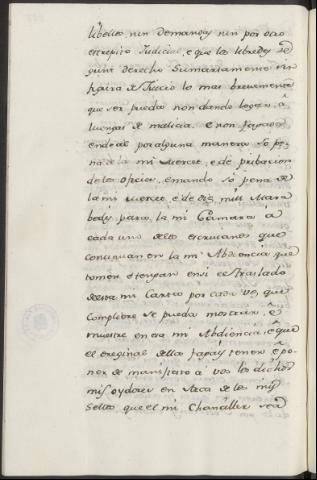 libelos, nin demandas nin por otro
escrepito Judicial, e que los libredes se
gunt derecho Sumariamente sin
figura de Juicio lo mas brevemente
que ser pueda non dando logar á
luengas de malicia. e non fagades
ende al por alguna manera so pe
na de la mi merced, e de privacion
de los oficios, e mando só pena de
la mi merced e de diez mill Mara
bedis para la mi Cámara á
cada uno de los escrivanos que
continuan en la mi Abdiencia que
tomen e tengan en si el traslado
desta mi Carta por cada vez que
compliere se pueda mostrar, é
muestre en esa mi Abdiencia, e que
el original della fagais tener é po
ner de manifiesto á vos los dichos
mis oydores en Arca de los mis
Sellos que el mi Chanciller